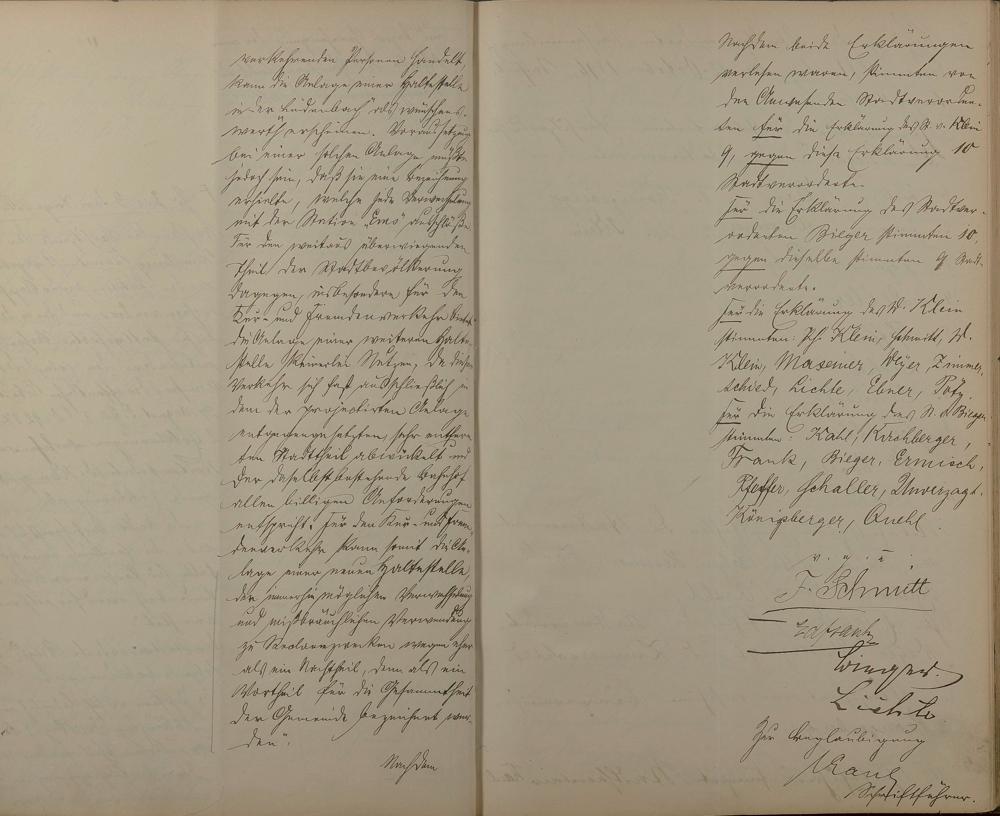 verkehrenden Personen handelt,
kann die Anlage einer Haltestelle
in der „Lindenbach" als wünschens-
werth erscheinen. Voraussetzung
bei einer solchen Anlage müßte
jedoch sein, daß sie eine Bezeichnung
erhielte, welche jede Verwechslung
mit der Station „Ems" ausschlösse.
Für den weitaus überwiegenden
Theil der Stadtbevölkerung
dagegen, insbesondere für den
Kur- und Fremdenverkehr bietet
die Anlage einer weiteren Halte-
stelle keinerlei Nutzen, da dieser
Verkehr sich fast ausschließlich in
dem der projectirten Anlage
entgegengesetzten, sehr entfern-
ten Stadttheil abwickelt und
der daselbst bestehende Bahnhof
allen billigen Anforderungen
entspricht. Für den Kur- und Frem-
denverkehr kann somit die An-
lage einer neuen Haltestelle,
der immerhin möglichen Verwechslung
und mißbräuchlichen Verwendung
zu wegen eher
als ein Nachtheil, denn als ein
Vortheil für die Gesammtheit
der Gemeinde bezeichnet wer-
den".
Nachdem
Nachdem beide Erklärungen
verlesen waren, stimmten von
den Anwesenden Stadtverordne-
ten für die Erklärung des St. v. Klein
9, gegen diese Erklärung 10
Stadtverordnete.
Für die Erklärung des Stadtver-
ordneten Bieger stimmten 10,
gegen dieselbe stimmten 9 Stadt-
verordnete.
Für die Erklärung des W. Klein
stimmten: Ph. Klein, Schmitt, W.
Klein, Massener, Weyer, Zimmer-
schied, Lichte, Ebner, Pötz.
Für die Erklärung des St. v. Bieger
stimmten: Kahl, Kirchberger,
Frank, Bieger, Ermisch,
Pfeffer, Schaller, Unverzagt,
Königsberger, Quehl.
v. g. u.
F. Schmitt
Lichte
Zur Beglaubigung
Schriftführer.